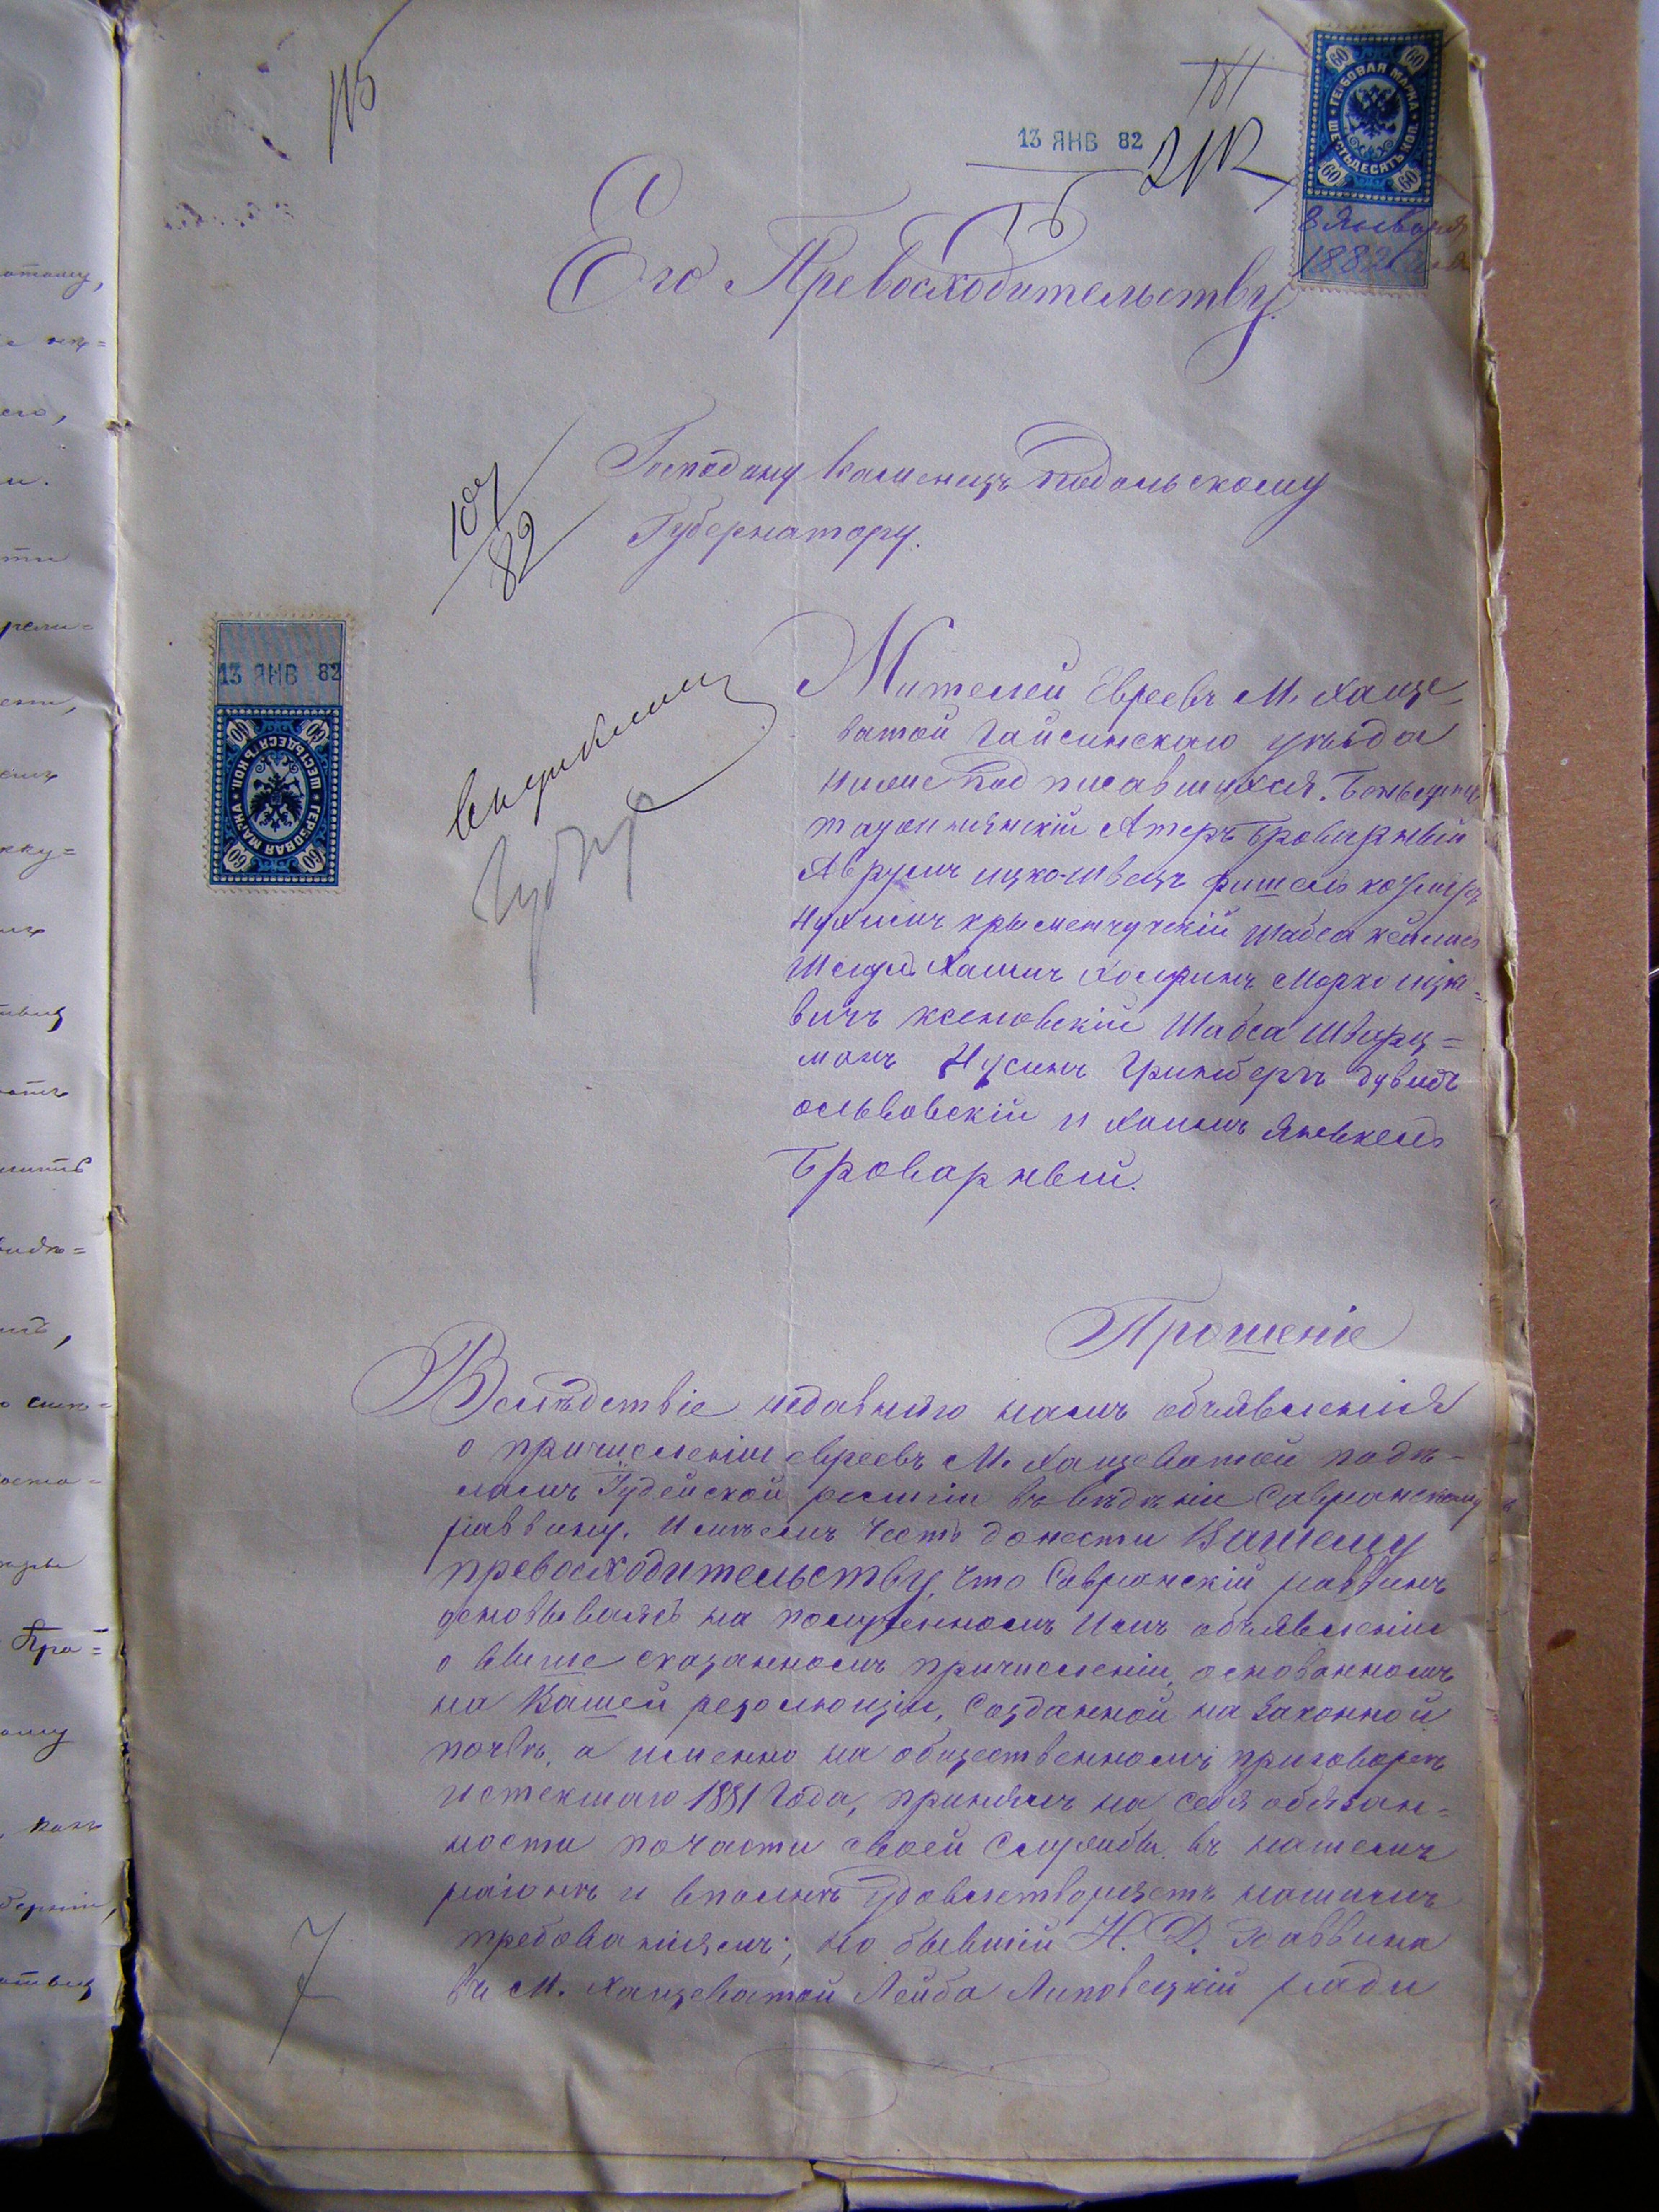 13 ЯНВ 82
60 60
ГЕРБОВАЯ МАРКА
ШЕСТЬДЕСЯТЪ КОП.
60 60
8 Января
1882
Его Превосходительству
Господину Каменецъ Подольскому
Губернатору.
107
82
13 ЯНВ 82
60 60
ШЕСТЬДЕСЯТЪ КОП.
ГЕРБОВАЯ МАРКА
60 60
Жителей Евреевъ М. Хаще-
ватой Гайсинскаго уѣзда
ниже подписавшихся.
Броварный
Аврумъ Ицко Швецъ Фишель
Нухимъ Крыменчугскій Шабса
Хаимъ Морко Ицко=
вичъ Шабса Шварц=
манъ Нусинъ Гринбергъ Дувидъ
ольвовскій и Хаимъ Янькель
Броварный.
Прошеніе
Вслѣдствіе недавняго намъ объявленія
о причисленіи евреевъ М. Хащеватой по дѣ-
ламъ Іудейской религіи въ вѣдѣніи Савранскому
раввину. Имѣемъ честь донести Вашему
превосходительству, что Савранскій раввинъ
основываясь на полученномъ Имъ объявленіи
о выше сказанномъ причисленіи, основанномъ
на Вашей резолюціи, созданной на законной
почвѣ, а именно на общественномъ приговорѣ
истекшаго 1881 года, принялъ на себя обязан=
ности по части своей службы въ нашемъ
районѣ и вполнѣ удовлетворяетъ нашимъ
требованіямъ; но бывшій Н. Д. Раввина
въ М. Хащеватой Лейба Липовецкій ради